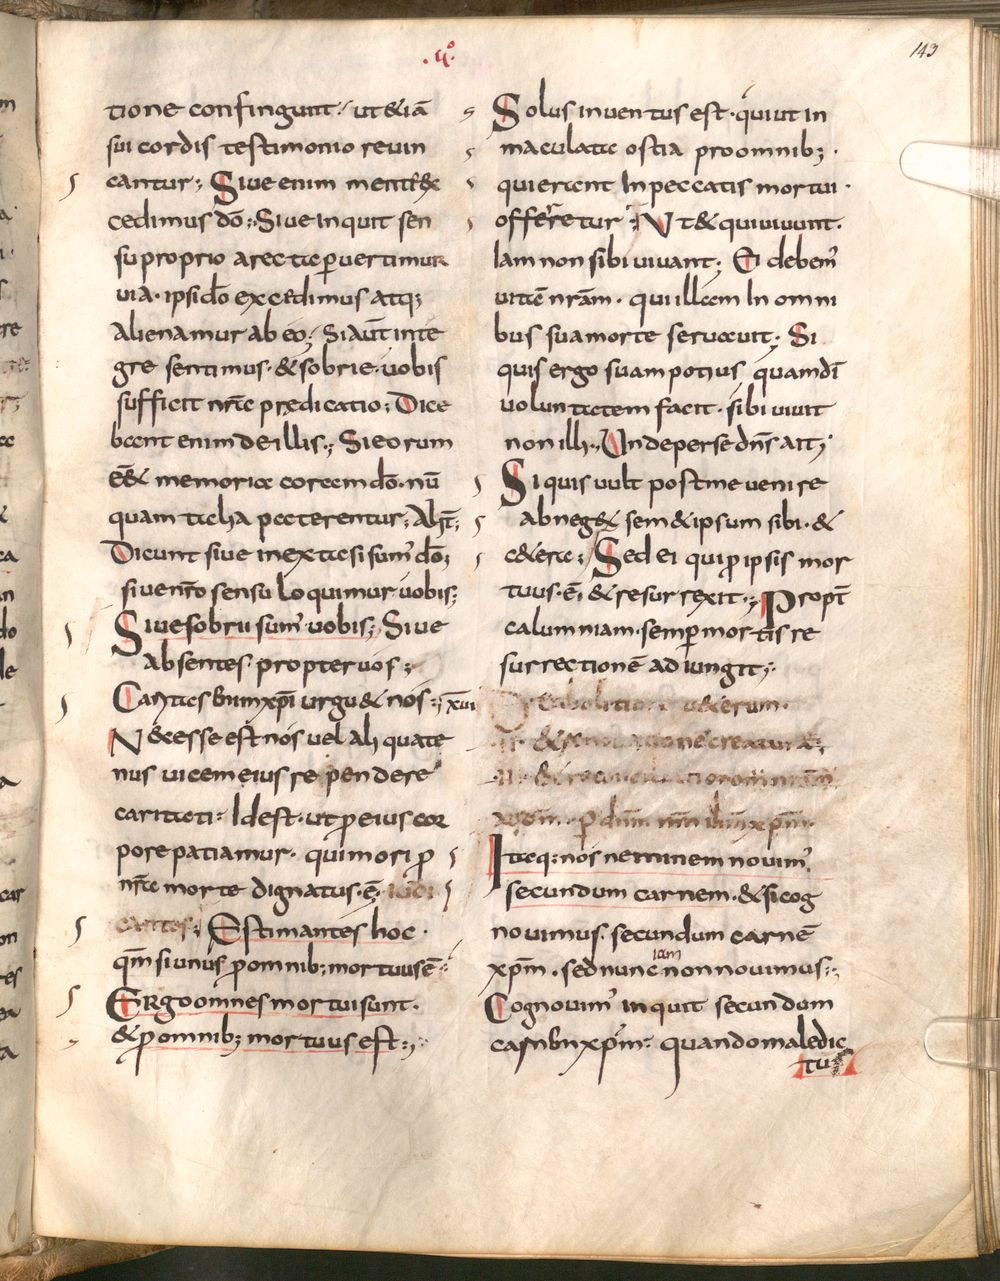 143
tione confingunt. ut &iā
sui cordis testimonio reuin
cantur; Siue enim mente ex
cedimus dō; Siue inquit sen
su proprio a recte puertimur
uia. ipsi dō excedimus atq;
alienamur ab eo; Si aut̄ inte
gre sentimus. & sobrie. uobis
sufficit nr̄a predicatio; Dice
bant enim de illis; Si eorum
memoriæ coram dō. nū
quam talia paterentur;
Dicunt siue in extasi sum' dō;
si uero sensu loquimur uobis;
Siue sobrii sum' uobis; Siue
absentes propter uos;
Caritas enim xp̄i urgu& nos; xui
N&esse est nos uel aliquate
nus uicem eius rependere
caritati. Id est. ut p eius cor
pore patiamur. qui mori p
nr̄a morte dignatus. ē.
Estimantes hoc.
qm̄ si unus p omnib; mortuus ē.
Ergo omnes mortui sunt.
& p omnib; mortuus est;
Solus inuentus est. qui ut in
maculata ostia pro omnib;.
qui erant In peccatis mortui.
offerretur. Vt & qui uiuunt.
Iam non sibi uiuant; Ei debem'
uitā nr̄am. qui illam In omni
bus sua morte seruauit; Si
quis ergo suam potius quam dī
uoluntatem facit. sibi uiuit
non illi. Unde per se dn̄s ait;
Si quis uult post me uenire
abneg& sem&ipsum sibi. &
c&era; Sed ei qui p ipsis mor
tuus. ē. & resurrexit; Propt̄
calumniam. semp mortis re
surrectionē adiungit;
u&erum.
creaturæ;
p dnm̄ nm̄ ihm̄ xpm̄.
Itaq; nos neminem nouim'
secundum carnem. & si cog
nouimus. secundum carnē
xpm̄. sed nunc iam non nouimus;
Cognouim' inquit secundum
carnem xpm̄. quando maledic
tus